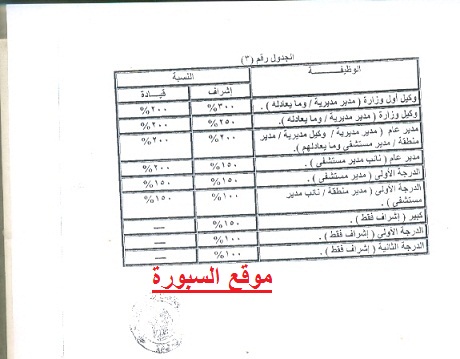 الجدول رقم (٣)
الوظيفـــــــة النسبة
إشراف قيادة
وكيل أول وزارة ( مدير مديرية / وما يعادله ) . ٣٠٠% ٢٠٠%
وكيل وزارة ( مدير مديرية / وما يعادله ) . ٢٥٠% ٢٠٠%
مدير عام ( مدير مديرية / وكيل مديرية / مدير
منطقة / مدير مستشفى وما يعادلهم ) . ٢٠٠% ٢٠٠%
مدير عام ( نائب مدير مستشفى ) . ١٥٠% ٢٠٠%
الدرجة الأولى ( مدير مستشفى ) . ١٥٠% ١٥٠%
الدرجة الأولى ( مدير منطقة / نائب مدير
مستشفى ) . ١٠٠% ١٥٠%
كبير ( إشراف فقط ) . ١٥٠% —
الدرجة الأولى ( إشراف فقط ) . ١٠٠% —
الدرجة الثانية ( إشراف فقط ) . ١٠٠% —
موقع السبورة